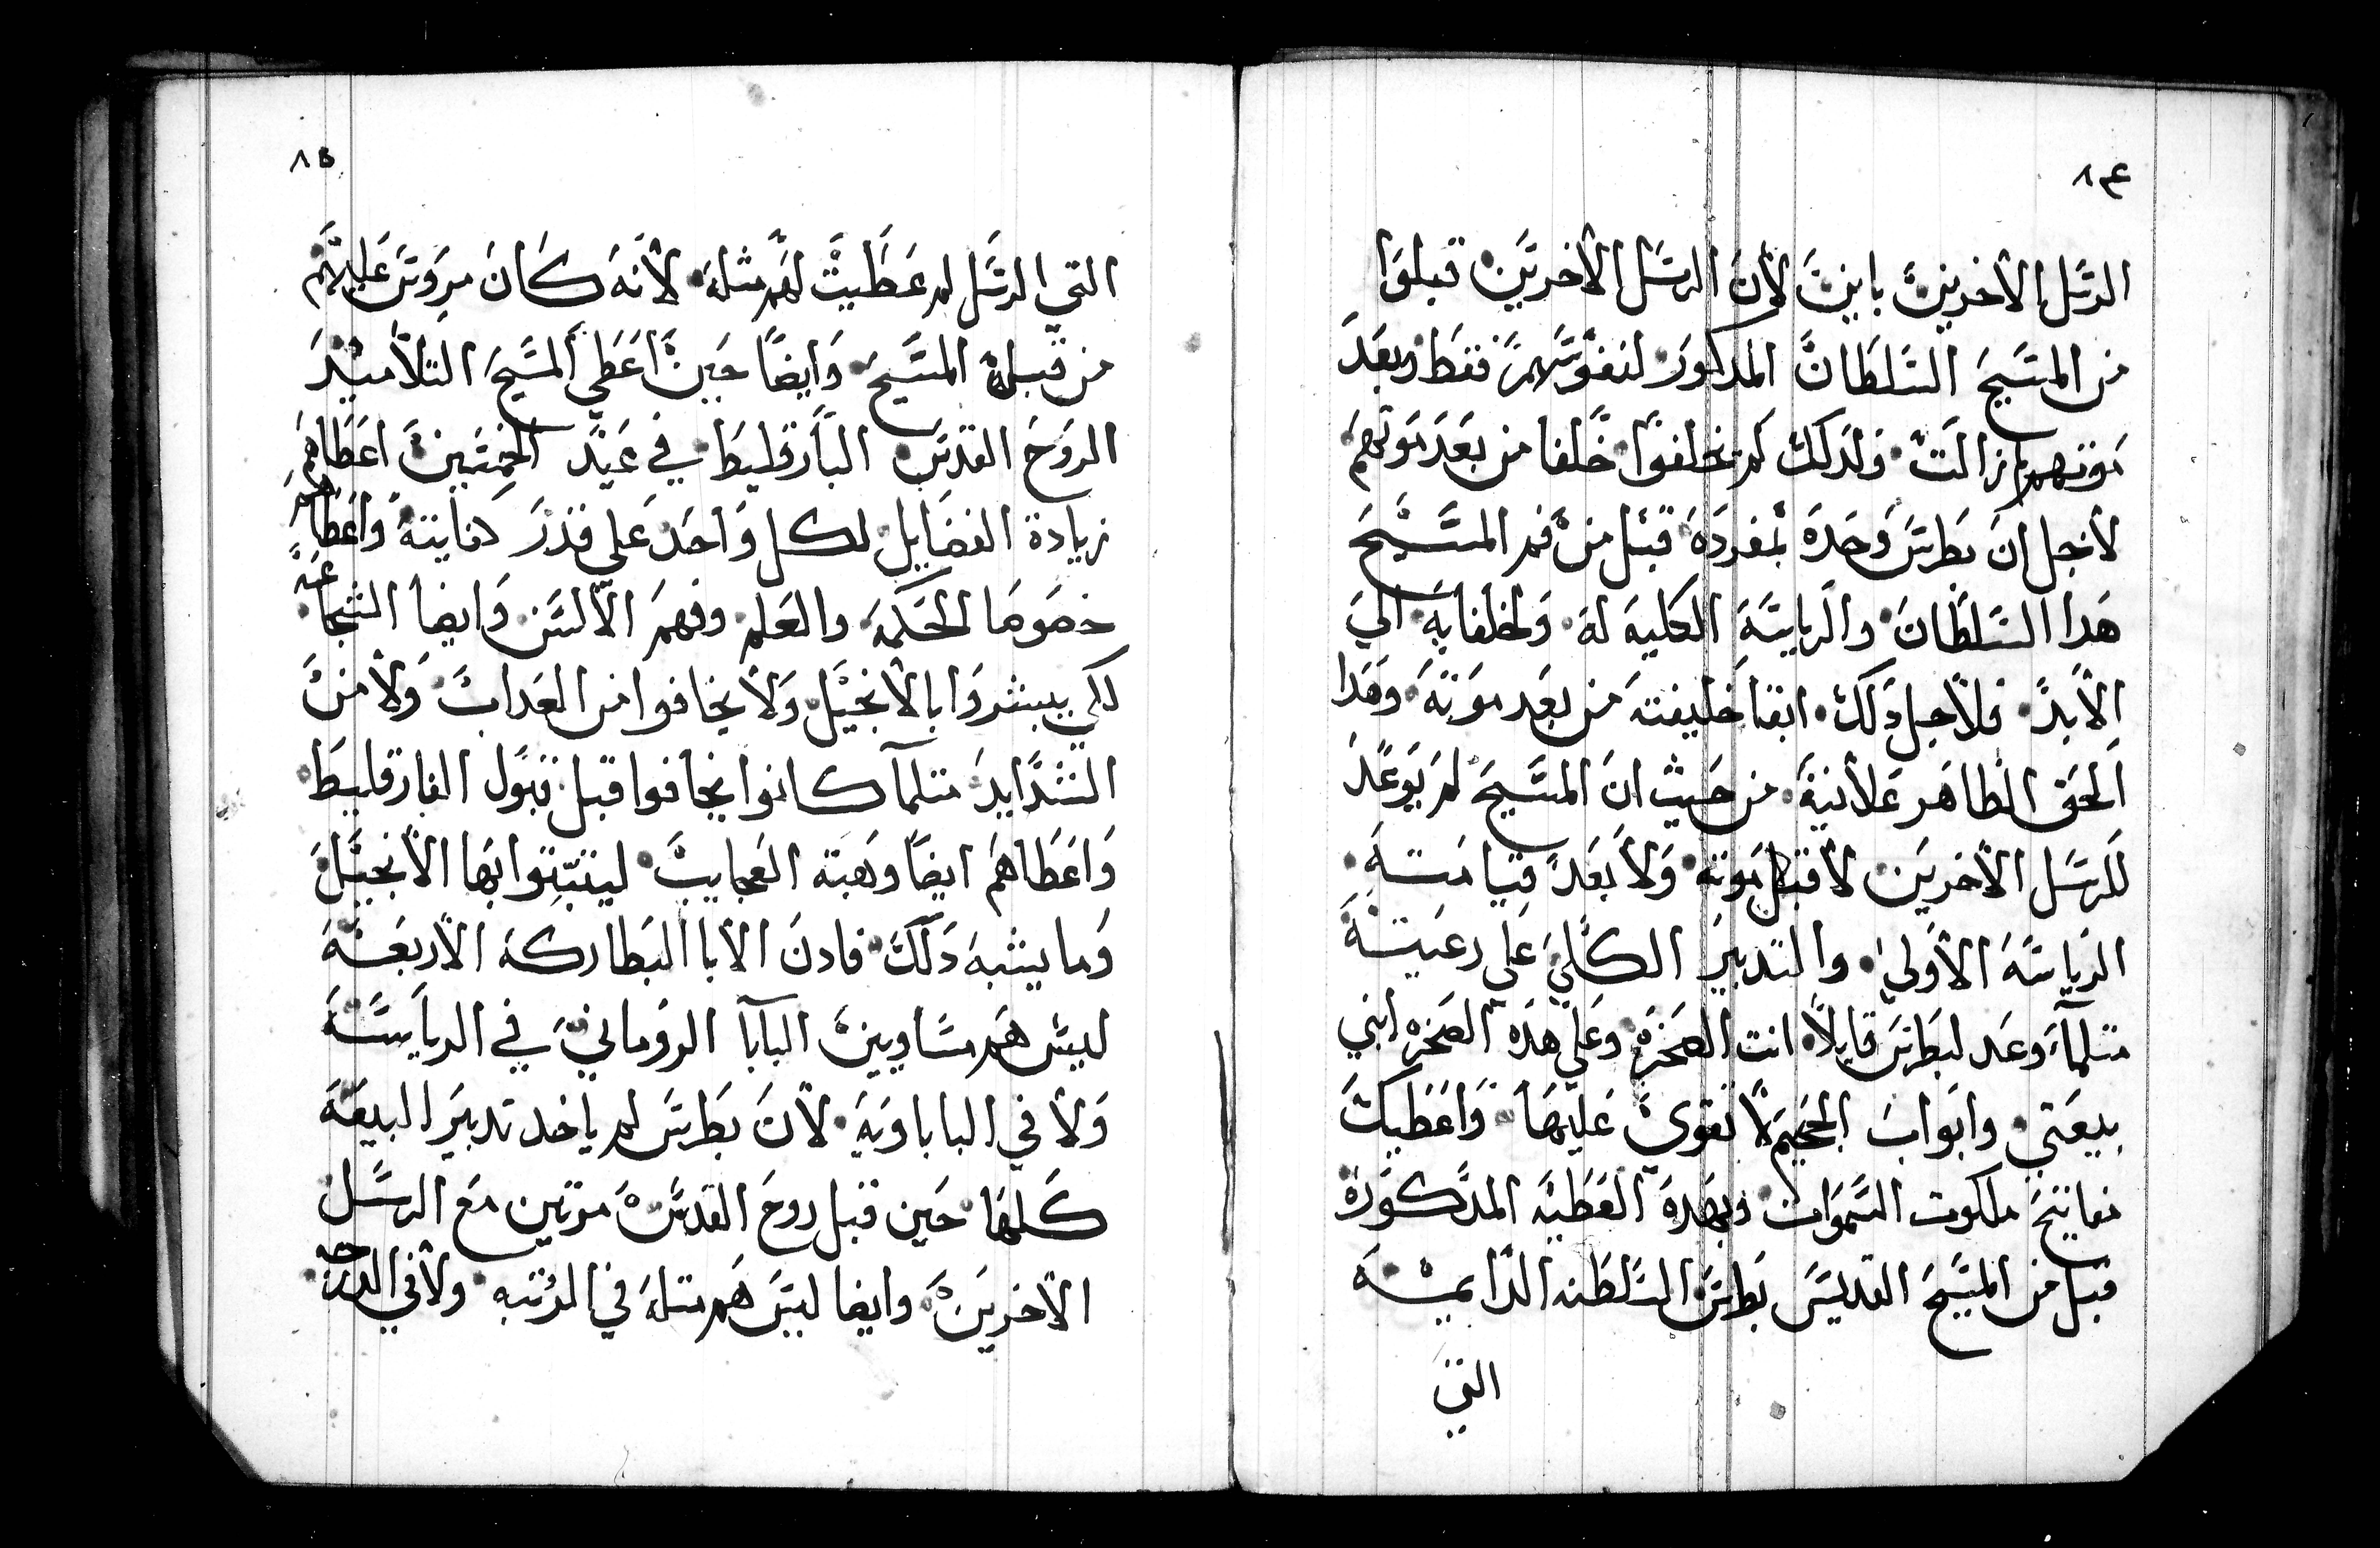 ٨٤
الرسل الاخرين باينت لان الرسل الاخرين قبلوا
من المسيح السلطان المدكور لنفوسهم فقط وبعد
موتهم زالت ولدلك لم يخلفوا خلفا من بعد موتهم
لاجل ان بطرس وحده بمفرده قبل من فم المسيح
هدا السلطان والرياسه الكليه له ولخلفايه الي
الابد فلاجل دلك ابقا خليفته من بعد موته وهدا
الحق الظاهر علانية من حيث ان المسيح لم يوعد
للرسل الاخرين لا قبل موته ولا بعد قيامته
الرياسه الاولي والتدبير الكلي علي رعيته
متلما وعد لبطرس قايلا انت الصخره وعلي هده الصخره ابني
بيعتي وابواب الجحيم لا تقوي عليها واعطيك
مفاتيح ملكوت السموات وبهده العطيه المدكوره
قبل من المسيح القديس بطرس السلطنه الدايمه
التي
٨٥
التي الرسل لم عطيت لهم مثله لانه كان مروس عليهم
من قبله المسيح وايضا حين اعطي المسيح التلاميد
الروح القدس البارقليط في عيد الخمسين اعطاهم
زيادة الفضايل لكل واحد علي قدر كفايته واعطاهم
خصوصا الحكمه والعلم وفهم الالسن وايضا الشجاعه
لكي يبشروا بالانجيل ولا يخافوا من العداب ولا من
الشدايد متلما كانوا يخافوا قبل قبول الفارقليط
واعطاهم ايضا وهبة العجايب ليتبتوا بها الانجيل
وما يشبه دلك فادن الابا البطاركه الاربعه
ليس هم مساويين البابا الروماني في الرياسه
ولا في الباباويه لان بطرس لم ياخد تدبير البيعه
كلها حين قبل روح القدس مرتين مع الرسل
الاخرين وايضا ليس هم متله في الرتبه ولا في الدرجه